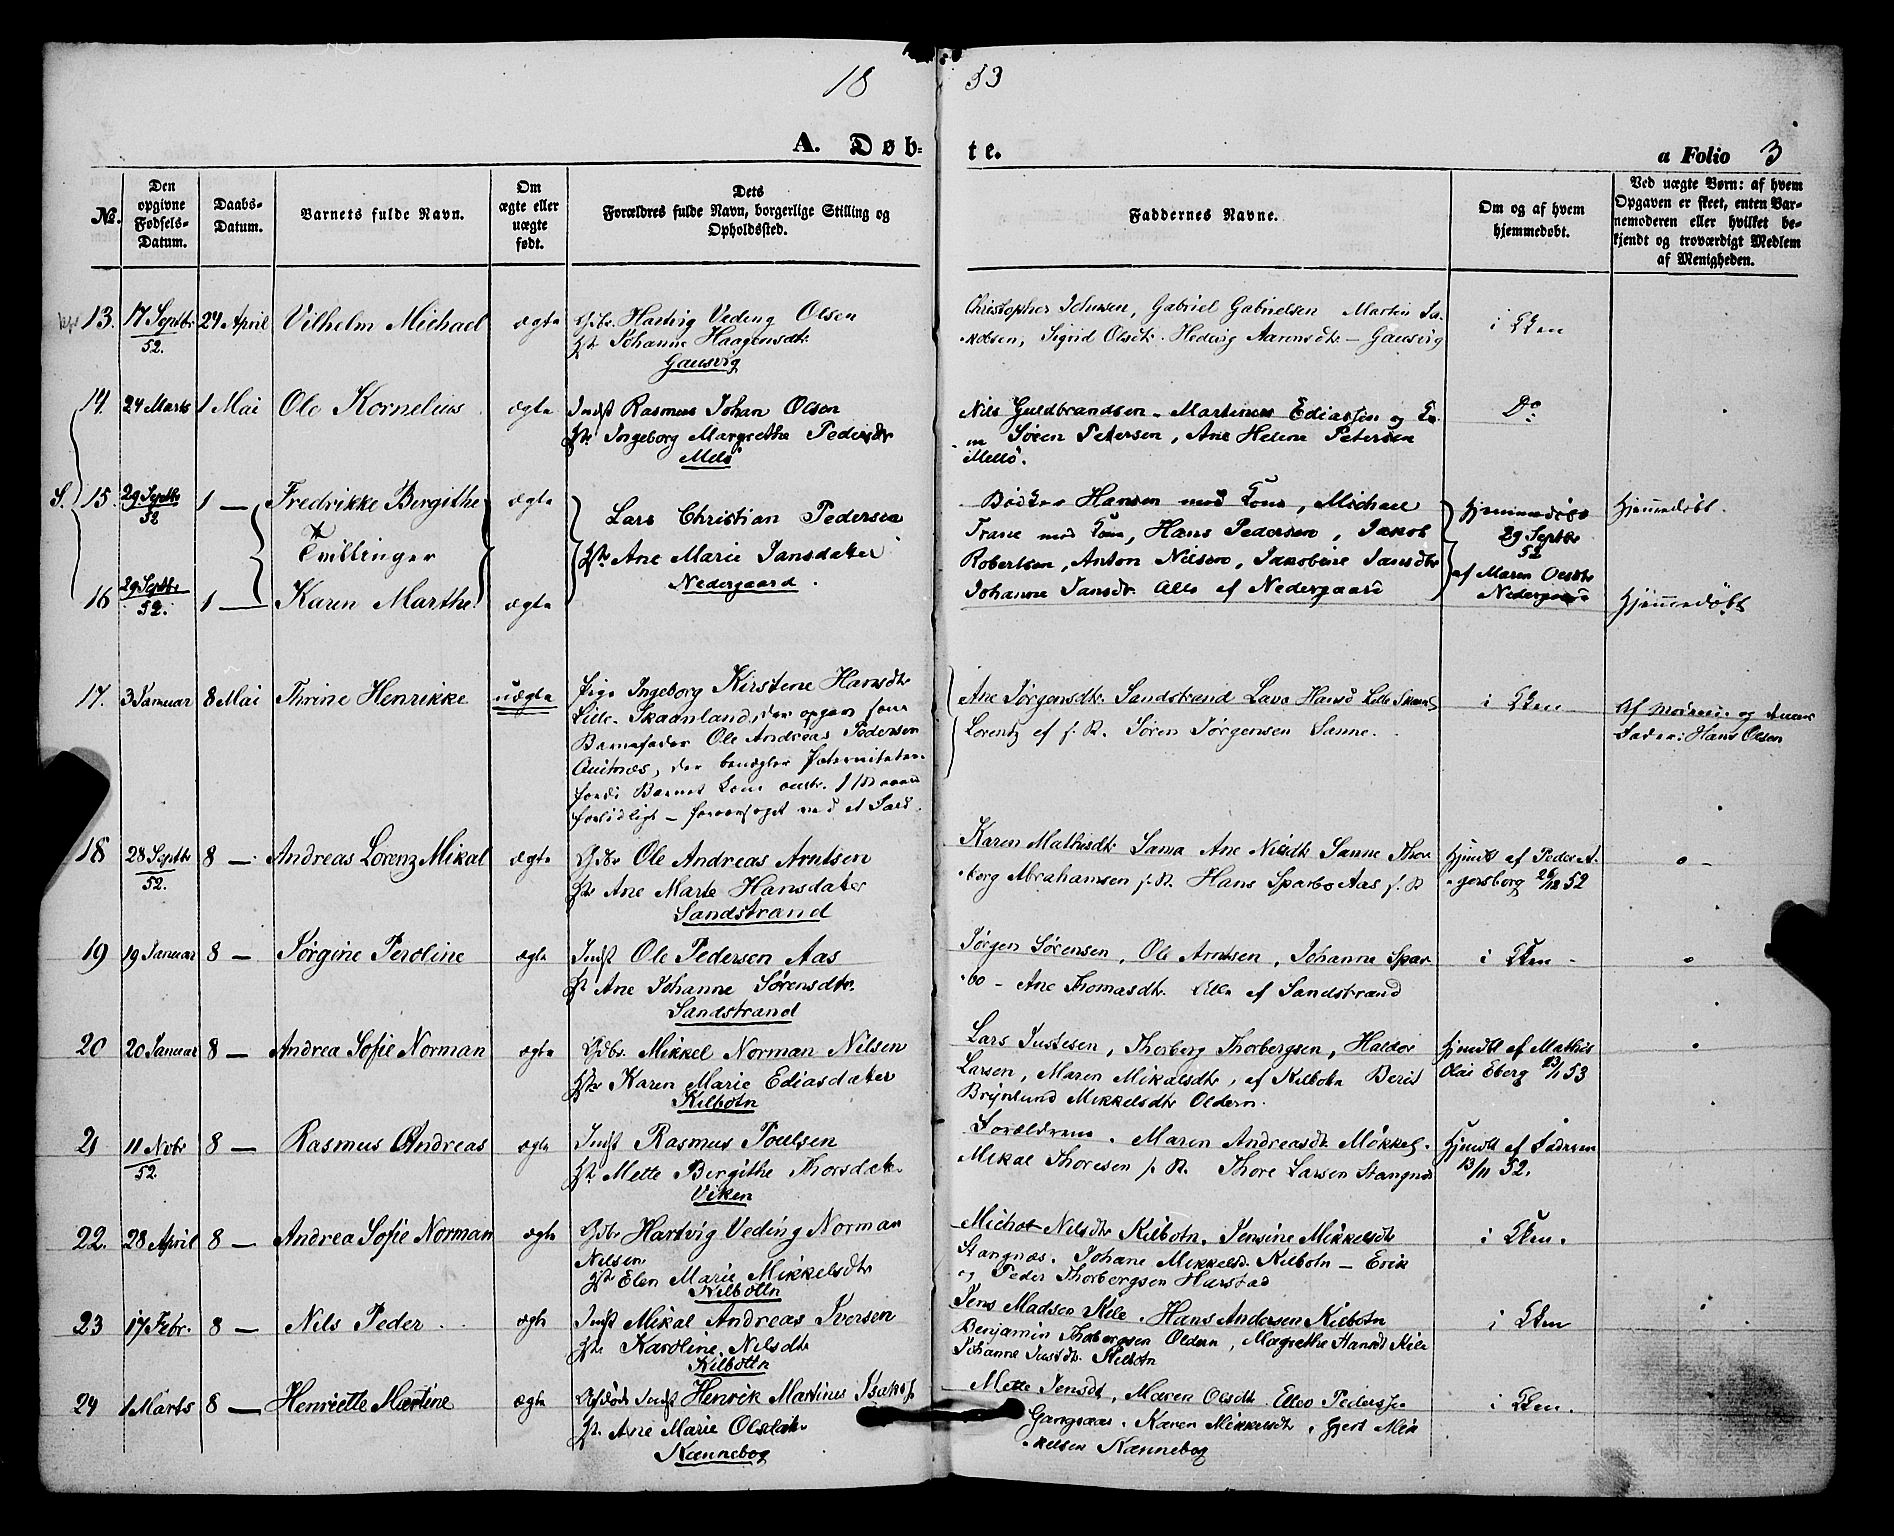 18
53
A. Døb-
te.
a Folio 3
No.
Den opgivne Fødsels-Datum.
Daabs-Datum.
Barnets fulde Navn.
Om ægte eller uægte født.
Dets
Forældres fulde Navn, borgerlige Stilling og
Opholdssted.
Faddernes Navne.
Om og af hvem hjemmedøbt.
Ved uægte Børn: af hvem
Opgaven er skeet, enten Bar-
nemoderen eller hvilket be-
kjendt og troværdigt Medlem
af Menigheden.
13. 17 Septbr 52. 24 April Vilhelm Michael ægte
Gdbr. Hartvig Veding Olsen
Johanne Haagensdtr.
Gausvig
Christopher Johnsen, Gabriel Gabrielsen Martin Ja-
kobsen, Sigrid Olsdtr. Hedevig Aarensdtr – Gausvig
i Kken
14. 24 Marts 1 Mai Ole Kornelius ægte
Indst Rasmus Johan Olsen
Ingeborg Margrethe Pedersdtr
Melö
Nils Guldbrandsen – Martinus Ediassen og
Sören Petersen, Ane Helene Petersen
Mellö.
Do
S. 15. 29 Septbr 52 1 — Fredrikke Bergithe ægte
Tvillinger
16 29 Septbr 52. 1 — Karen Marthe ægte
Lars Christian Pedersen
Ane Marie Jansdater
Nedergaard.
Bödker Hansen med Kone, Michael
Trane med Kone, Hans Pedersen, Jakob
Robertsen, Anton Nilsen, Jakobine Jansdtr
Johanne Jansdtr. Alle af Nedergaard
Hjemmedöbt
29 Septbr
52
af Maren Olsdtr
Nedergaard
Hjemmedöbt.
Hjemmedöbt
17. 3 Januar 8 Mai Thrine Henrikke uægte
Pige Ingeborg Kirstine Hansdtr
Lille-Skaanland, der opgav som
Barnefader Ole Andreas Pedersen
der benægter Paterniteten
fordi Barnet kom
Ane Jörgensdtr. Sandstrand Lava Hansd Lille Skaanl
Lorentz af f. R. Sören Jörgensen Sanne.
i Kken
Af Moderen og dennes
Fader: Hans Olsen
18 28 Septbr 52. 8 — Andreas Lorenz Mikal ægte
Gdbr Ole Andreas Arntsen
Ane Marte Hansdater
Sandstrand
Karen Mathisdtr Sama Ane Nilsdtr Sanne Thor
berg Abrahamsen f. R. Hans Sparbo Aas f. R
Hjmdbt af Peder A-
sborg 26/12 52
19 19 Januar 8 — Jörgine Peroline ægte
Indst Ole Pedersen Aas
Ane Johanne Sörensdtr.
Sandstrand
Jörgen Sörensen, Ole Arntsen, Johanne Spar-
bo – Ane Thomasdtr. Alle af Sandstrand
i Kken –
20 20 Januar 8 — Andrea Sofie Norman ægte
Gdbr. Mikkel Norman Nilsen
Karen Marie Ediasdater
Kilbotn
Lars Justesen, Thorberg Thorbergsen, Haldor
Larsen, Maren Mikalsdtr, af Kilbotn Berit
Brynlund Mikkelsdtr Oldern.
Hjmdbt af Mathis
Olai Eberg 23/1 53
21 11 Novbr 52. 8 — Rasmus Andreas ægte
Indst Rasmus Poulsen
Mette Bergithe Thorsdater
Viken
Forældrene. Maren Andreasdtr Mökkel.
Mikal Thoresen f. R. Thore Larsen Stangnæs
Hjemdbt af Faderen
13/11 52.
22. 28 April 8 — Andrea Sofie Norman ægte
Gdbr Hartvig Veding Norman
Nilsen
Elen Marie Mikkelsdtr
Kilbottn
Nilsdtr Kilbotn, Jensine Mikkelsdtr
Stangnæs. Johane Mikkelsd. Kilbotn – Erik
og Peder Thorbergsen Harstad
i Kken.
23 17 Febr. 8 — Nils Peder ægte
Indst Mikal Andreas Iversen
Karoline Nilsdtr
Kilbottn
Jens Madsen Kile. Hans Andersen Kilbotn
Benjamin Thorbergsen Oldern, Magrethe Hansdt Kile
Johanne Kilbotn
i Kken
24 1 Marts 8 — Henriette Martine ægte
Henrik Martinus
Ane Marie Olsdatr
Kænnebog
Mette Jensdt, Maren Olsdtr Peders
Gangsaas. Karen Mikkelsdtr. Gjert Mik
kelsen Kænnebog
i Kken.